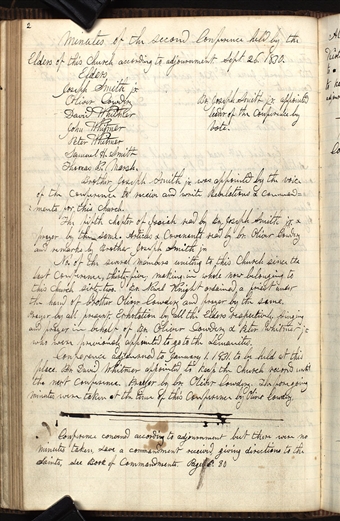 2
Minutes of the second Conference held by the
Elders of this Church according to adjournment Sept. 26. 1830.
Elders
Joseph Smith jr.
Oliver Cowdery
David Whitmer
John Whitmer
Peter Whitmer
Samuel H. Smith
Thomas B. Marsh.
Br. Joseph Smith jr. appointed
leader of the Conference by
vote.
Brother Joseph Smith jr. was appointed by the voice
of the Conference to receive and write Revelations & command-
ments for this Church.
The fifth chapter of Isaiah read by Br. Joseph Smith jr. &
prayer by the same. Articles & Covenants read by br. Oliver Cowdery
and remarks by Brother Joseph Smith jr.
No. of the several members uniting to this Church since the
last Conference, thirty-five, making in whole now belonging to
this Church sixty-two. Br. Newel Knight ordained a priest under
the hand of Brother Oliver Cowdery and prayer by the same.
Prayer by all present. Exhortation by all the Elders respectively. Singing
and prayer in behalf of Br. Oliver Cowdery & Peter Whitmer jr.
who were previously appointed to go to the Lamanites.
Conference adjourned to January 1. 1831. to be held at this
place. Br. David Whitmer appointed to keep the Church record until
the next Conference. Prayer by br. Oliver Cowdery. The foregoing
minutes were taken at the time of this Conference by Oliver Cowdery.
Conference convened according to adjournment but there were no
minutes taken save a commandment received giving directions to the
Saints, see Book of Commandments Page 80